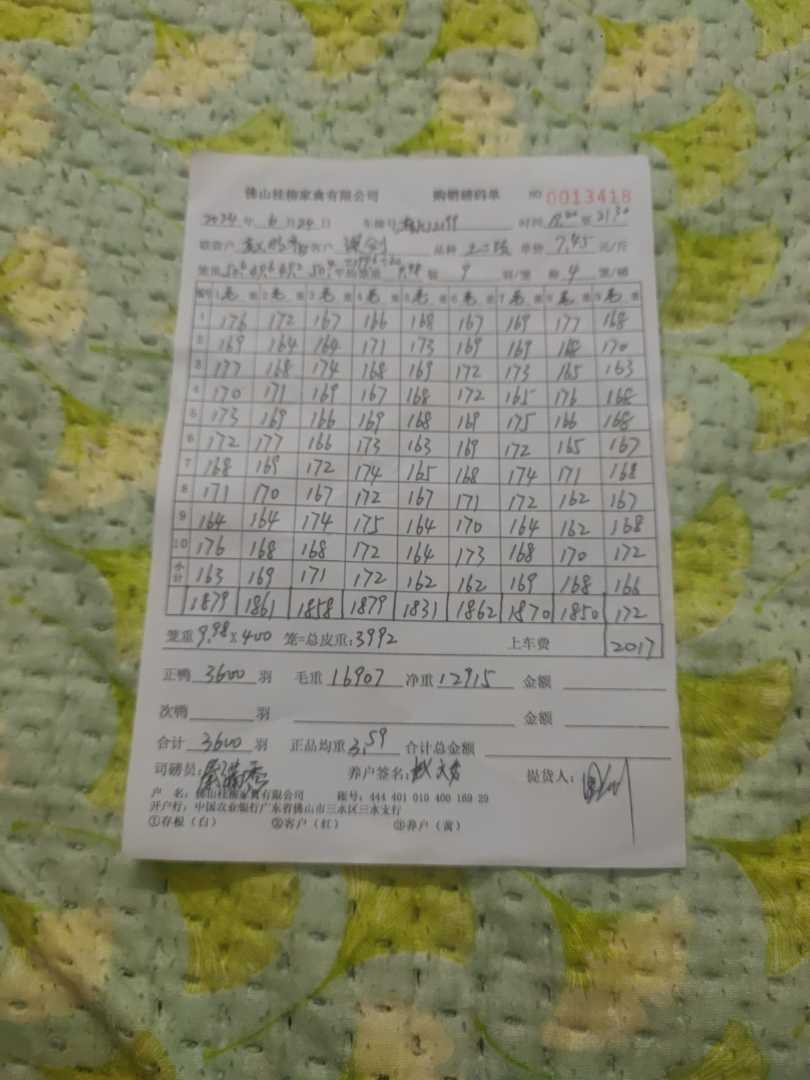 佛山桂柳家禽有限公司 购销磅码单 NO 0013418
2024年6月24日 车牌号 2199 时间 至 21:30
客户 品种 单价 7.45 元/斤
9.98 9 羽/笼 4 笼/磅
1毛 2毛 3毛 4毛 5毛 6毛 7毛 8毛 9毛
1 176 172 167 166 168 167 169 177 168
2 169 164 164 171 173 169 169 168 170
3 177 168 174 168 169 172 173 165 163
4 170 171 169 167 168 172 165 176 168
5 173 169 166 169 168 169 175 166 168
6 172 177 166 173 163 169 172 165 167
7 168 169 172 174 165 168 174 171 168
8 171 170 167 172 167 171 172 162 167
9 164 164 174 175 164 170 164 162 168
10 176 168 168 172 164 173 168 170 172
小计 163 169 171 172 162 162 169 168 166
1879 1861 1858 1879 1831 1862 1870 1850 172
笼重9.98×400 笼=总皮重:3992 上车费 2017
正鸭 3600 羽 毛重 16907 净重 12915 金额
次鸭 羽 金额
合计 3600 羽 正品均重 3.59 合计总金额
司磅员: 养户签名: 提货人:
户 名:佛山桂柳家禽有限公司 账号:444 401 010 400 169 29
开户行:中国农业银行广东省佛山市三水区三水支行
①存根(白) ②客户(红) ③养户(黄)